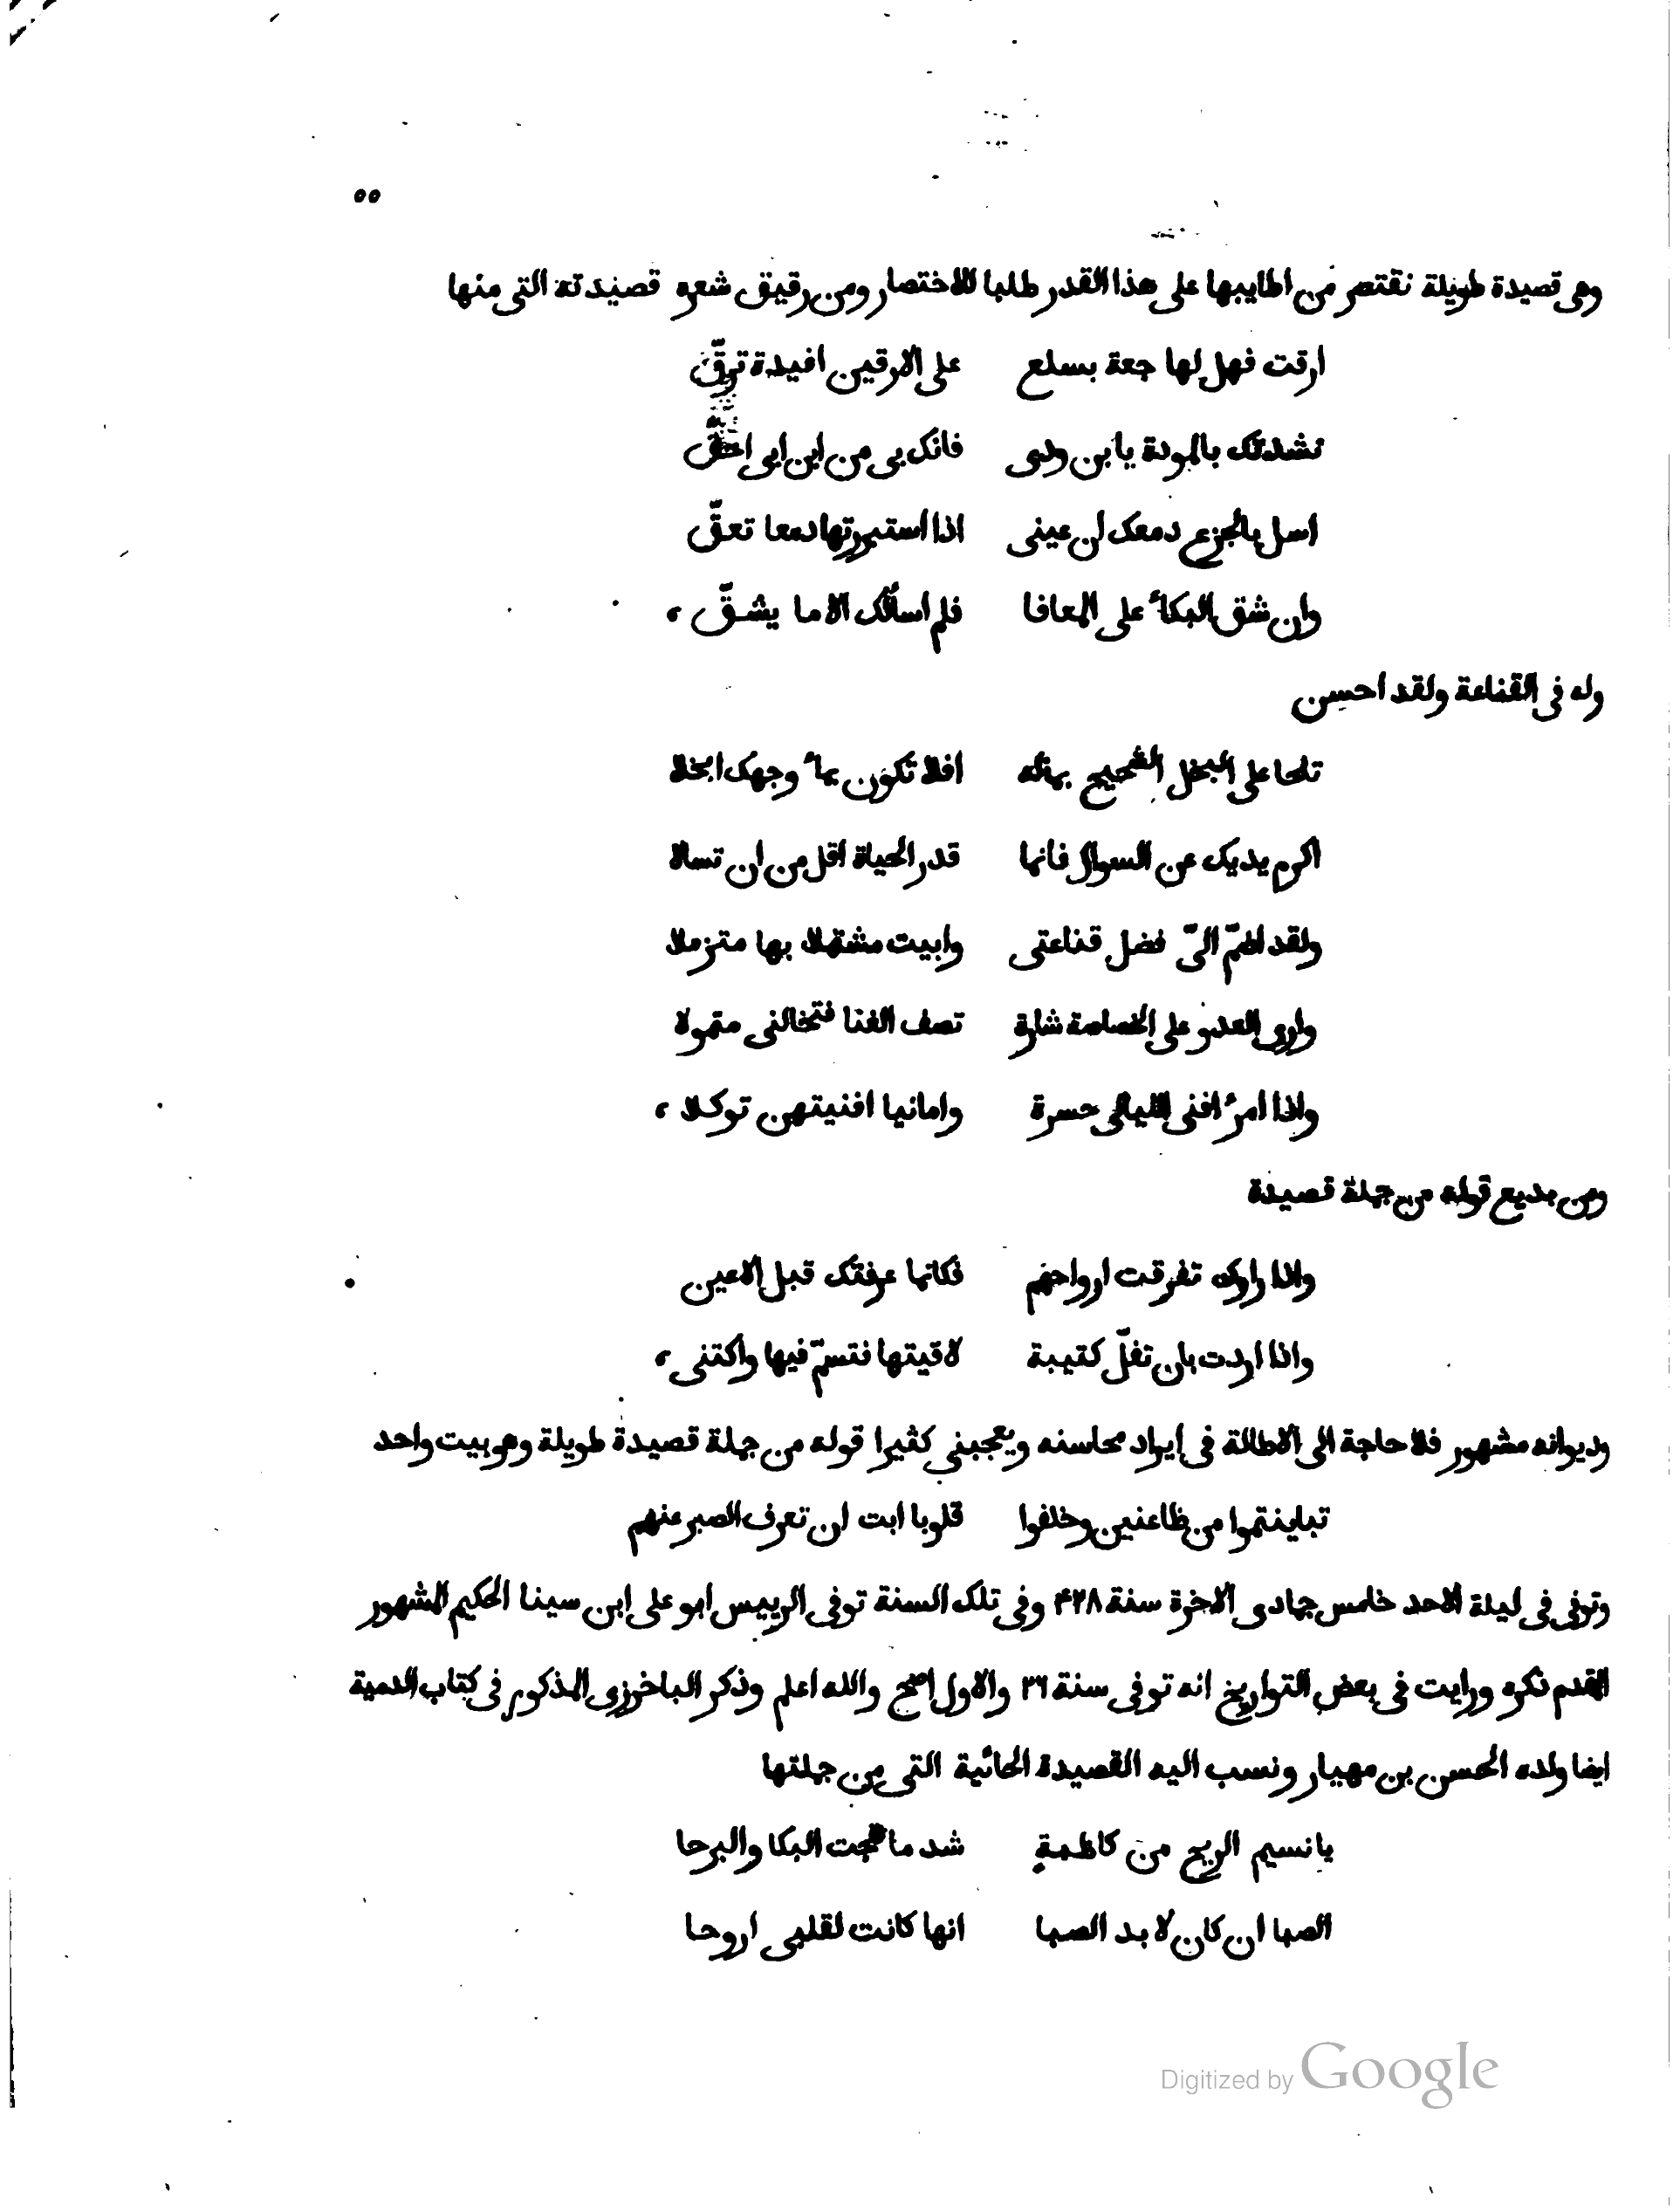 ٥٥
وهى قصيدة طويلة نقتصر من اطايبها على هذا القدر طلبا للاختصار ومن رقيق شعره قصيدته التى منها
ارقت فهل لها جعة بسلع على الارقين افيدة ترقّ
نشدتك بالمودة يا بن ودى فانك بى من ابن ابى احقّ
اسل بالجزع دمعك ان عينى اذا استبررتها دمعا تعقّ
وان شق البكاء على المعافا فلم اسألك الا ما يشقّ ،
وله فى القناعة ولقد احسن
تلحا على البخل الشحيح بماله افلا تكون بماء وجهك ابخلا
اكرم يديك عن السوال فانما قدر الحياة اقل من ان تسالا
ولقد اضمّ الىّ فضل قناعتى وابيت مشتملا بها متزملا
وارى العدو على الخصاصة شارة تصف الغنا فتخالنى متمولا
واذا امرء افنى الليالى حسرة وامانيا افنيتهن توكلا ،
ومن بديع قوله من جملة قصيدة
واذا راوك تفرقت ارواحهم فكانما عرفتك قبل الاعين
واذا اردت بان تفلّ كتيبة لاقيتها فتسمّ فيها واكتنى ،
وديوانه مشهور فلا حاجة الى الاطالة فى ايراد محاسنه ويعجبنى كثيرا قوله من جملة قصيدة طويلة وهو بيت واحد
تباينتموا من ظاعنين وخلفوا قلوبا ابت ان تعرف الصبر عنهم
وتوفى فى ليلة الاحد خامس جمادى الاخرة سنة ۴۲۸ وفى تلك السنة توفى الرييس ابو على ابن سينا الحكيم المشهور
المقدم ذكره ورايت فى بعض التواريخ انه توفى سنة ۲٦ والاول اصح والله اعلم وذكر الباخرزى المذكور فى كتاب الدمية
ايضا ولده الحسن بن مهيار ونسب اليه القصيدة الحائية التى من جملتها
يا نسيم الريح من كاظمة شد ما هجت البكا والبرحا
الصبا ان كان لا بد الصبا انها كانت لقلبى اروحا
Digitized by Google